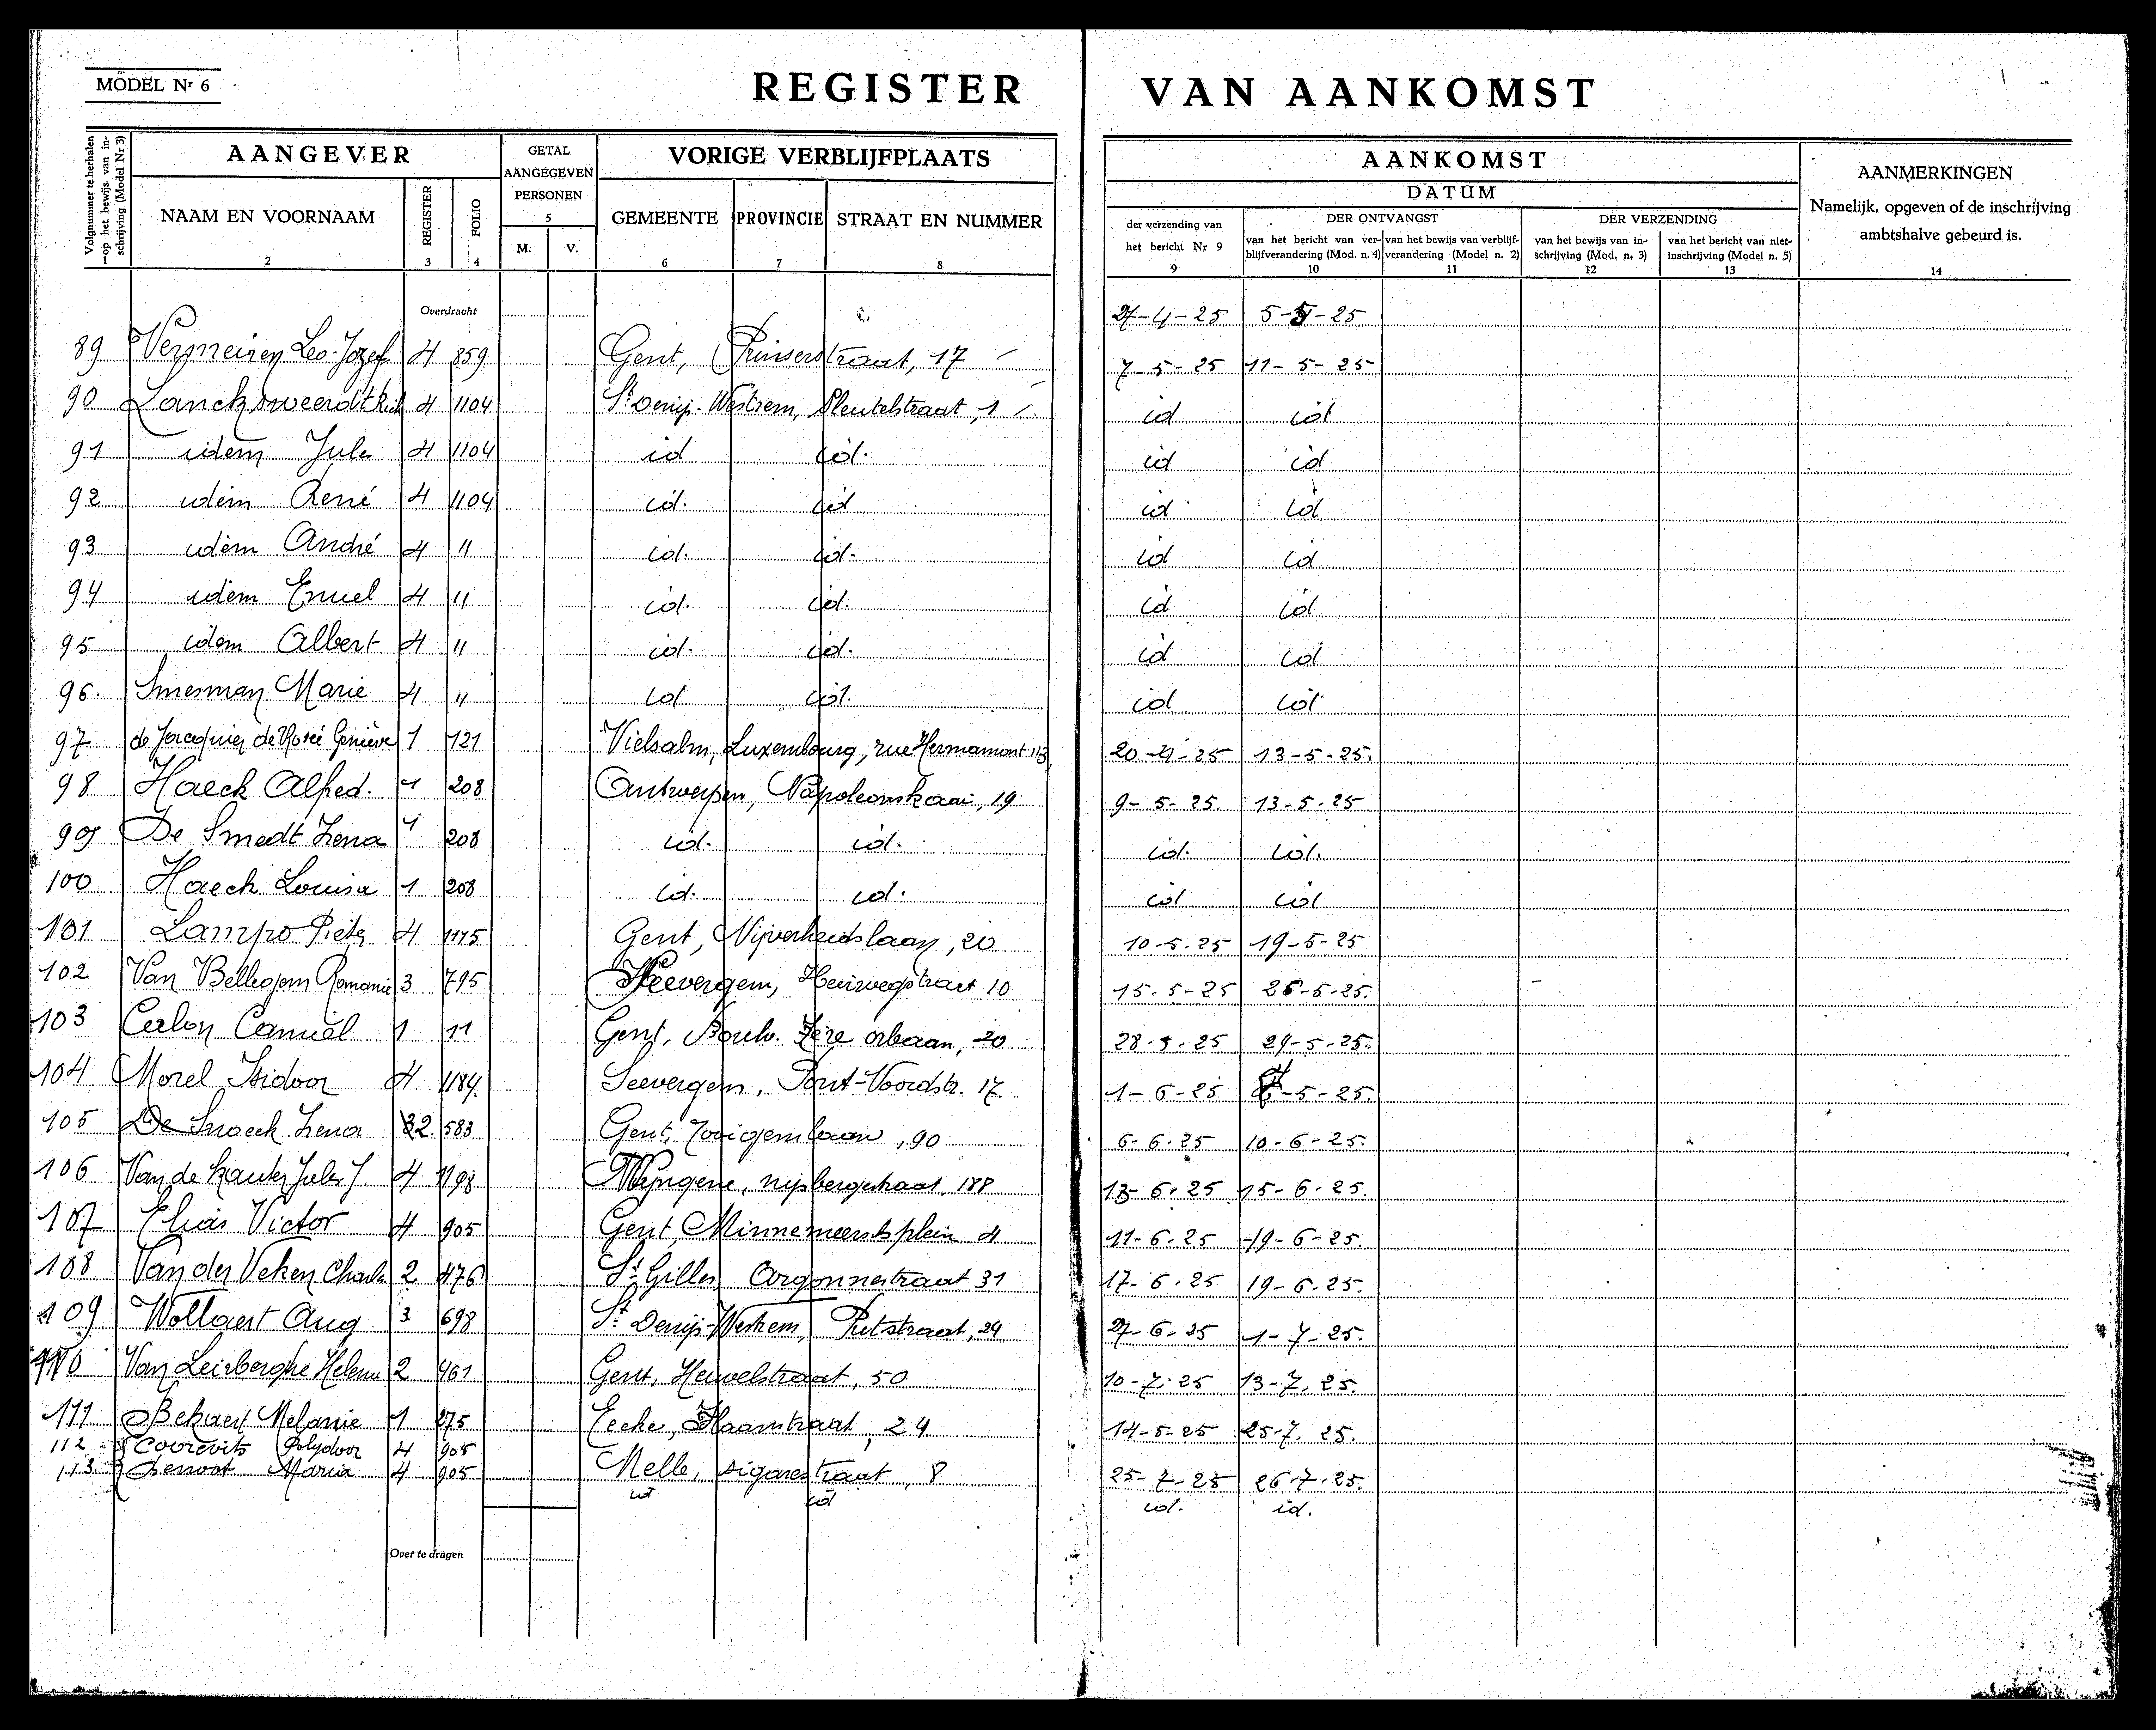 MODEL Nr 6
REGISTER VAN AANKOMST
Volgnummer te herhalen op het bewijs van inschrijving (Model Nr 3)
AANGEVER
GETAL AANGEGEVEN PERSONEN
VORIGE VERBLIJFPLAATS
AANKOMST
DATUM
AANMERKINGEN
Namelijk, opgeven of de inschrijving
ambtshalve gebeurd is.
NAAM EN VOORNAAM REGISTER FOLIO M. V. GEMEENTE PROVINCIE STRAAT EN NUMMER
der verzending van het bericht Nr 9
DER ONTVANGST
van het bericht van verblijfverandering (Mod. n. 4)
van het bewijs van verblijfverandering (Model n. 2)
DER VERZENDING
van het bewijs van inschrijving (Mod. n. 3)
van het bericht van niet-inschrijving (Model n. 5)
1 2 3 4 5 6 7 8 9 10 11 12 13 14
Overdracht
27-4-25 5-5-25
89 Vermeiren Leo-Jozef 4 859 Gent, Prinsenstraat, 17 7-5-25 11-5-25
90 4 1104 St Denijs-Westrem, Sleutelstraat, 1 id id
91 idem Jules 4 1104 id id. id id
92 idem René 4 1104 id. id id id
93 idem André 4 11 id. id. id id
94 idem 4 11 id. id. id id
95 idem Albert 4 11 id. id. id id
96. Smesman Marie 4 11 id id. id id
97 1 121 Vielsalm, Luxembourg, rue Hermamont 113 20-4-25 13-5-25.
98 Haeck Alfred. 1 208 Antwerpen, Napoleonskaai, 19 9-5-25 13-5-25
99 De Smedt Lena 1 208 id. id. id. id.
100 Haeck Louisa 1 208 id. id. id id
101 Lampo Pieter 4 1115 Gent, Nijverheidslaan, 20 10-5-25 19-5-25
102 Van Bellegem Romanie 3 795 Heirwegstraat 10 15-5-25 26-5-25.
103 1 11 Gent, Boulv. Frère orbaan, 20 28-5-25 29-5-25.
104 Morel Isidoor 4 1184. Seevergem, Pont-Voordstr. 17 1-6-25 -5-25.
105 De Snoeck Lena 32 583 Gent, 90 6-6-25 10-6-25.
106 Van de Jules J. 4 1198 Wyngene, 188 13-6-25 15-6-25.
107 Elias Victor 4 905 Gent, Minnemeersplein 4 11-6-25 19-6-25.
108 Van der Veken Charles 2 476 St Gilles Argonnestraat 31 17-6-25 19-6-25.
109 Wollaert Aug 3 698 St Denijs-Westrem, Putstraat, 24 27-6-25 1-7-25.
110 Van Leirberghe Helena 2 461 Gent, Heuvelstraat, 50 10-7-25 13-7-25.
111 Bekaert Melanie 1 275 Eecke, 24 14-5-25 25-7.25.
112 Coorevits Polydoor 4 905 Melle, sigarestraat, 8 25-7-25 26-7-25.
113. Maria 4 905 id id id. id.
Over te dragen